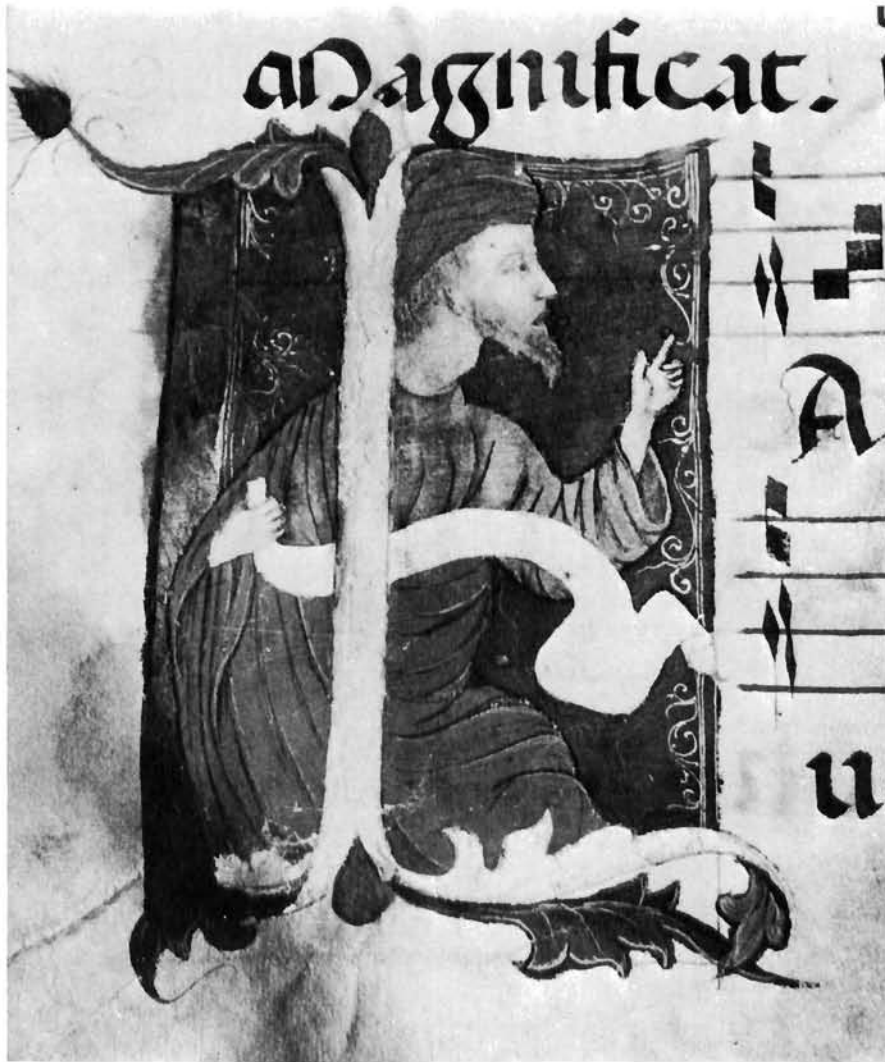 Magnificat.
A
u